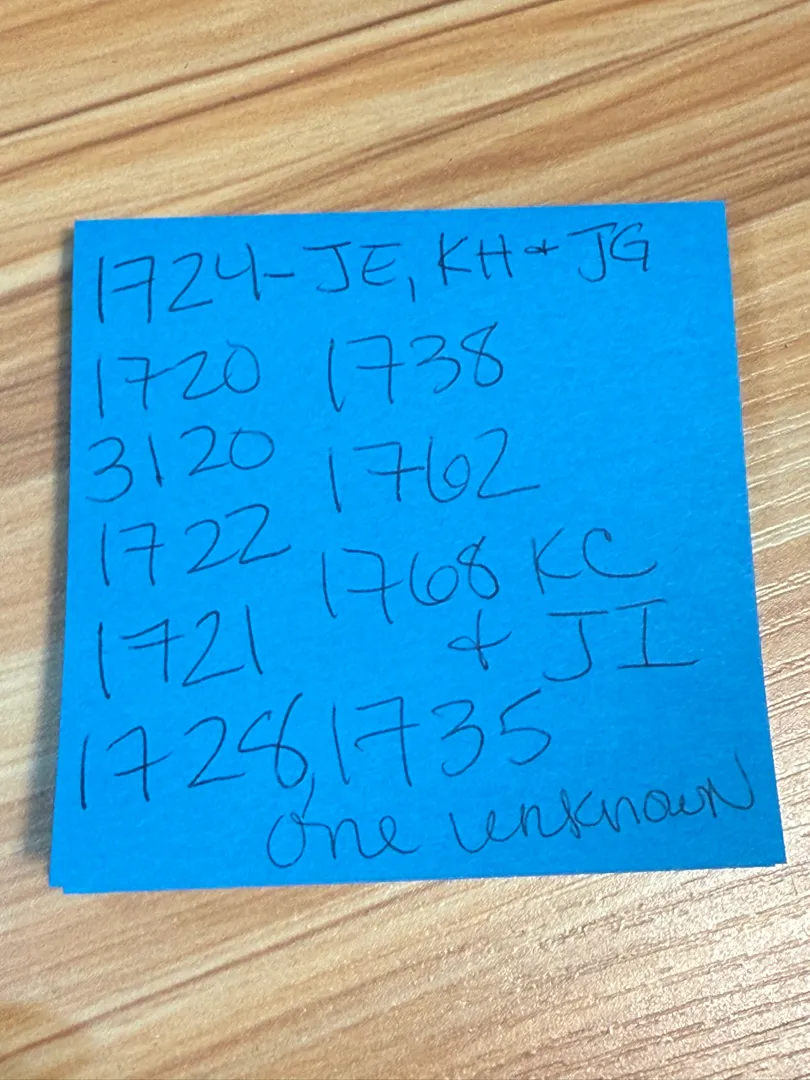 1724- JE, KH & JG
1720 1738
3120 1762
1722 1768 KC
1721 & JI
1728, 1735
one unknown